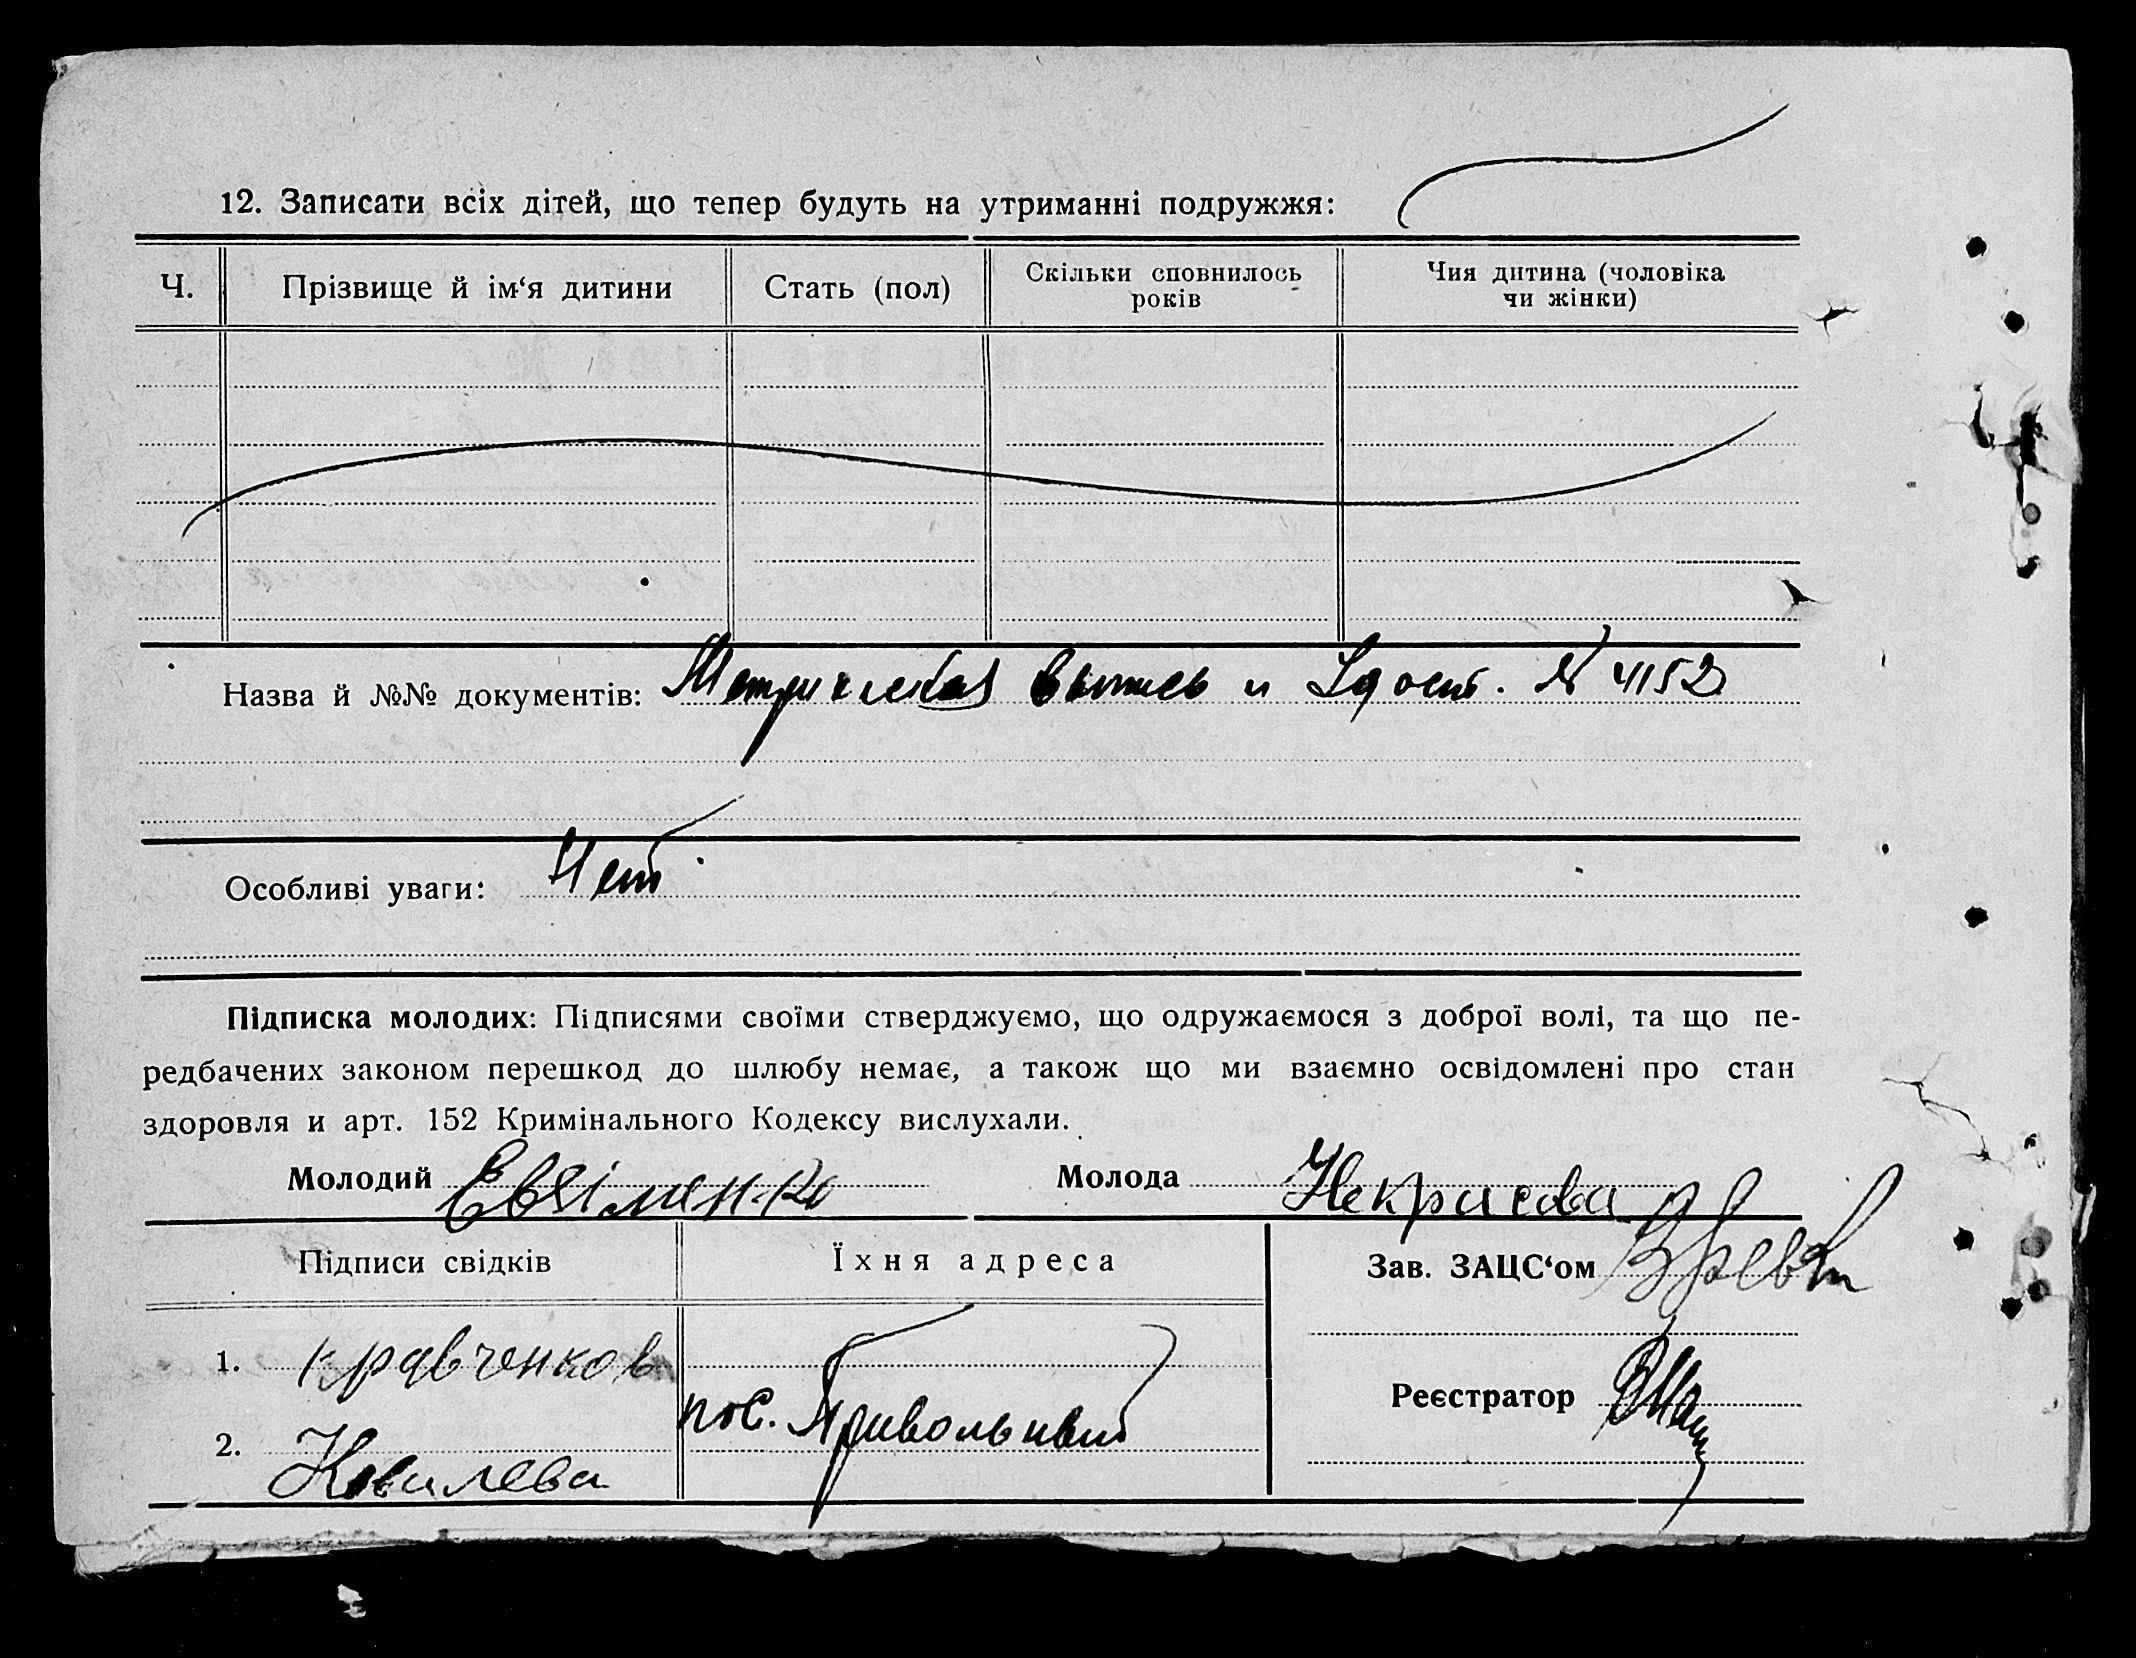 12. Записати всіх дітей, що тепер будуть на утриманні подружжя:
Ч. Прізвище й ім‘я дитини Стать (пол) Скільки сповнилось років Чия дитина (чоловіка чи жінки)
Назва й №№ документів: Метрическая выпись и Удост. № 4152
Особливі уваги: Нет
Підписка молодих: Підписями своїми стверджуємо, що одружаємося з доброї волі, та що пе-
редбачених законом перешкод до шлюбу немає, а також що ми взаємно освідомлені про стан
здоровля и арт. 152 Кримінального Кодексу вислухали.
Молодий Молода Некрасова
Підписи свідків Їхня адреса Зав. ЗАЦС‘ом
1. Кравченков
пос. Привольный
Реєстратор
2. Ковилева